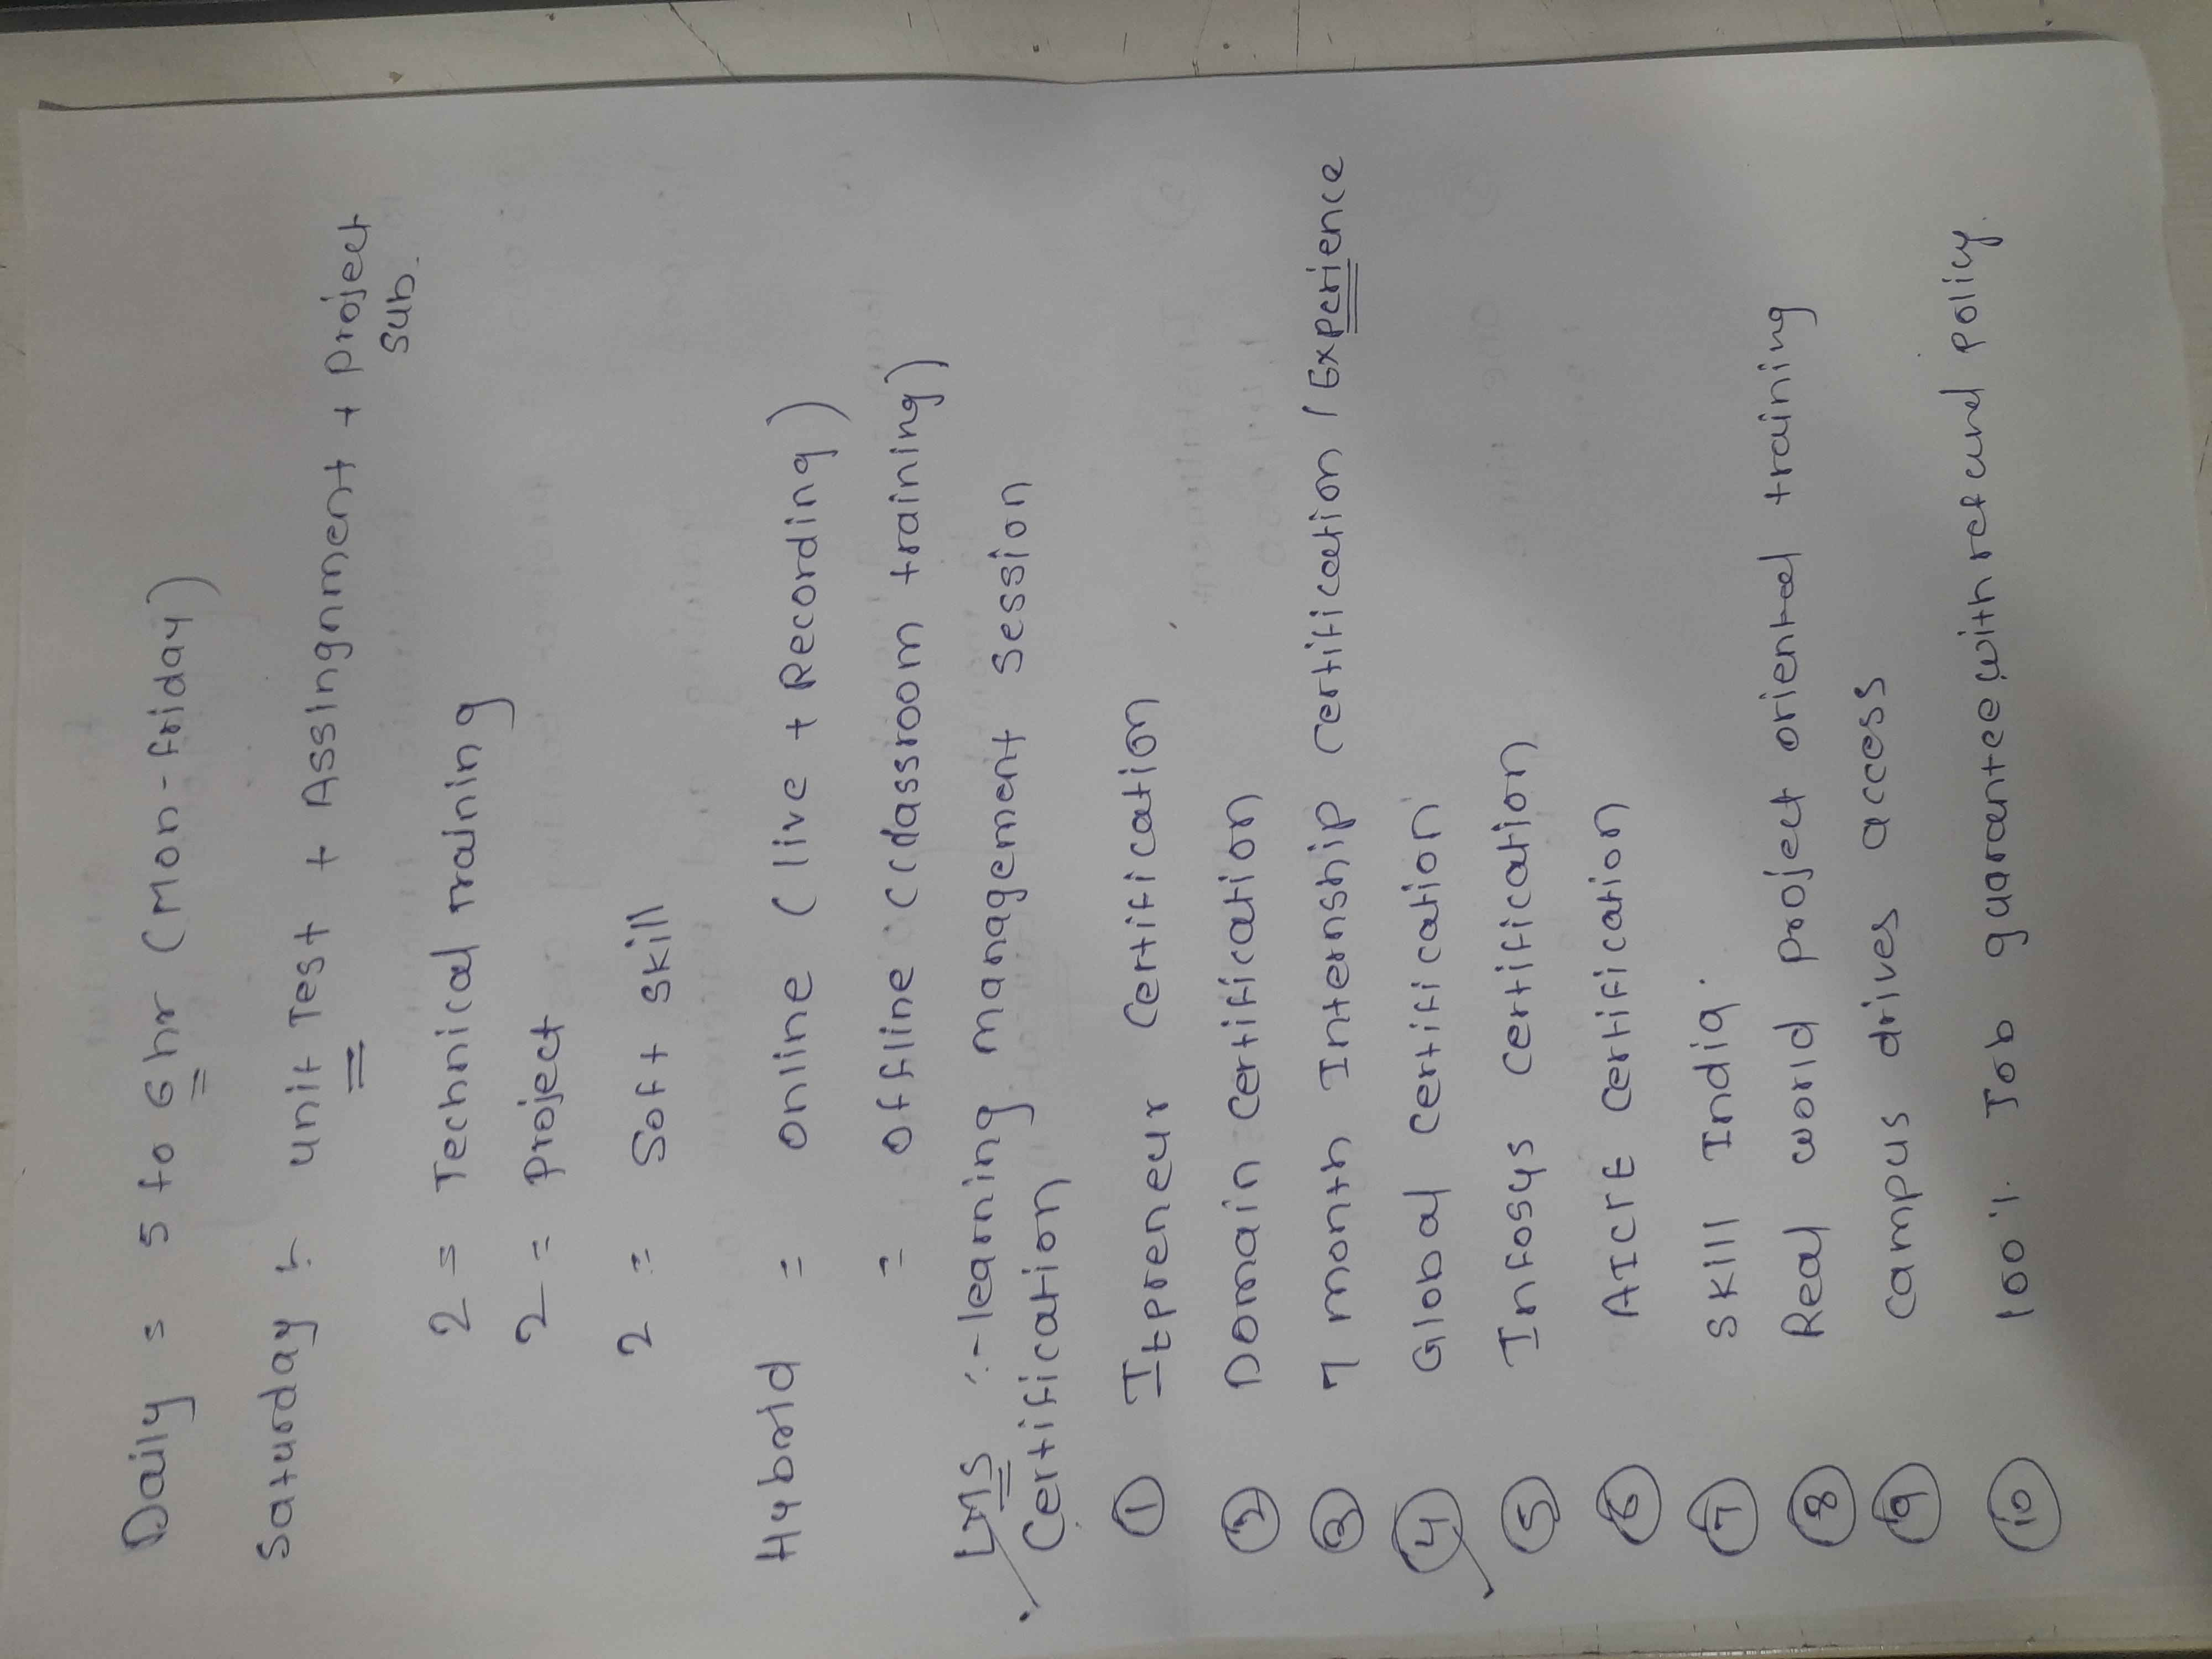 Daily = 5 to 6 hr (Mon-friday)
Saturday :- unit Test + Assingnment + project
sub.
2 = Technical training
2 = project
2 = Soft skill
Hybrid = online (live + Recording)
= offline (classroom training)
LMS :- learning management session
Certification
① Itpreneur certification
② Domain certification
③ 7 month Internship certification / Experience
④ Global certification
⑤ Infosys certification
⑥ AICTE certification
⑦ Skill India.
⑧ Real world project oriented training
⑨ campus drives access
⑩ 100 % Job guarantee with refund policy.